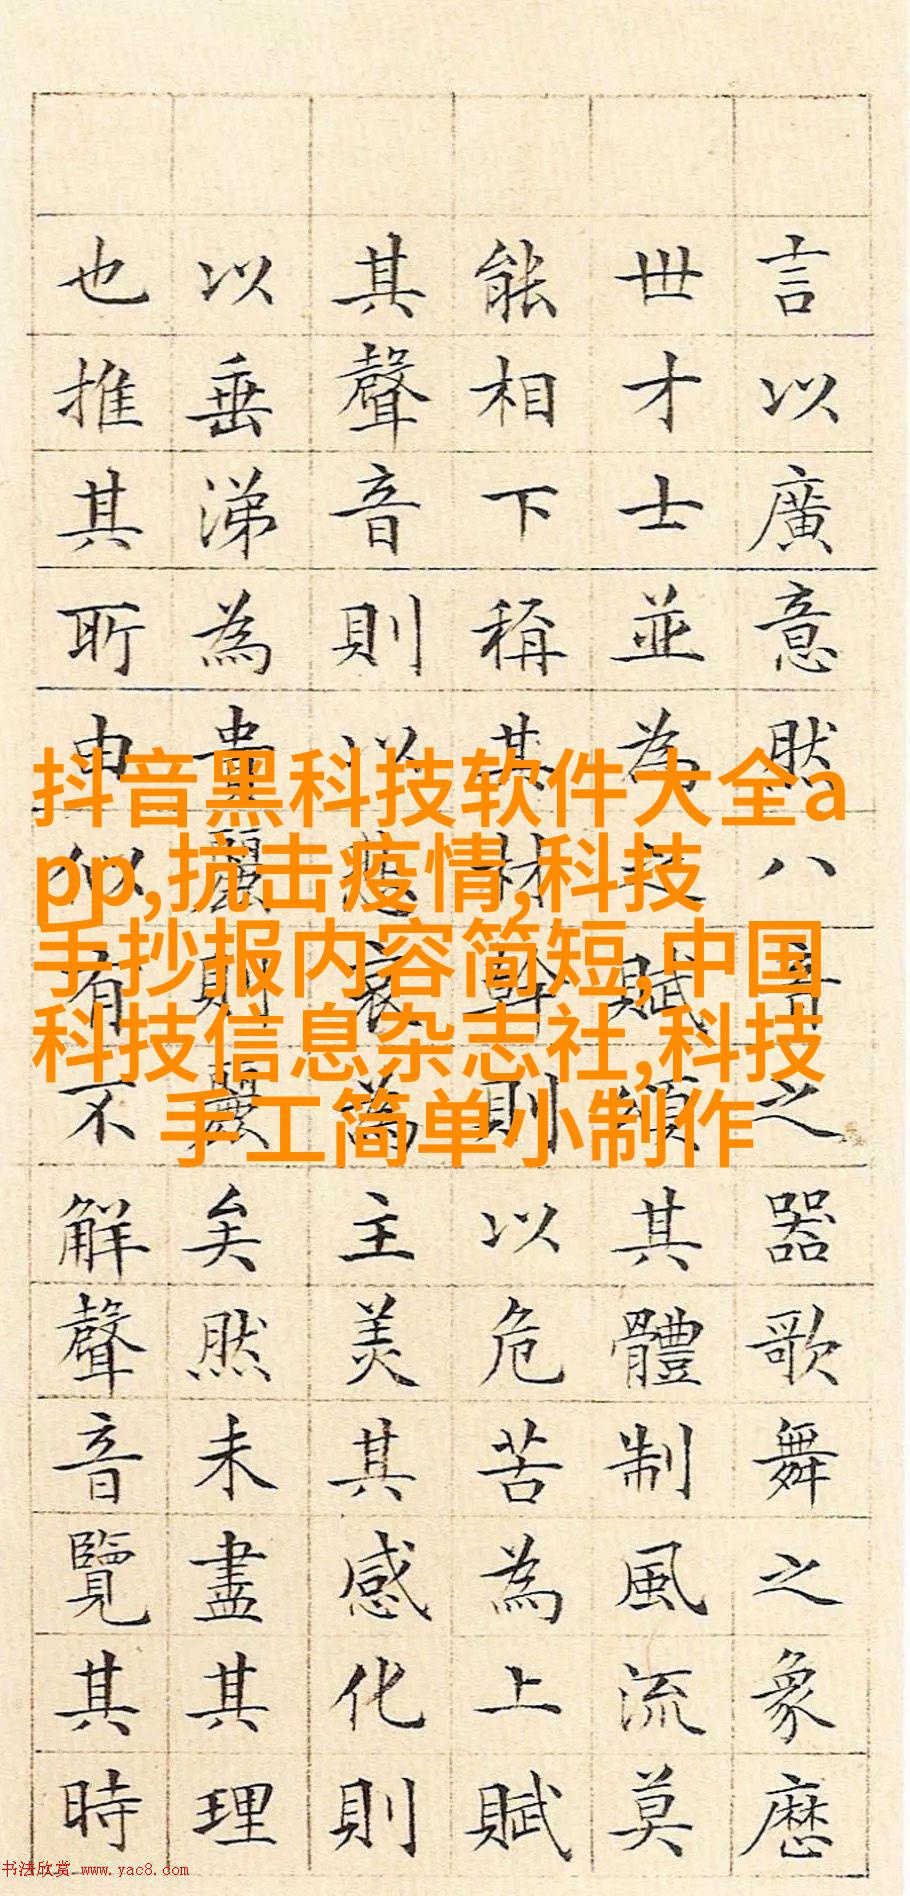 言以廣意然八音之器歌舞之象歷
世才士並為之賦頌其體制風流莫
能相下稱其材幹則以危苦為上賦
其聲音則以悲哀為主美其感化則
以垂涕為貴麗則麗矣然未盡其理
也推其所由似有不解聲音覽其時
抖音黑科技软件大全a
pp,抗击疫情,科技
手抄报内容简短,中国
科技信息杂志社,科技
手工简单小制作
书法欣赏 www.yac8.com